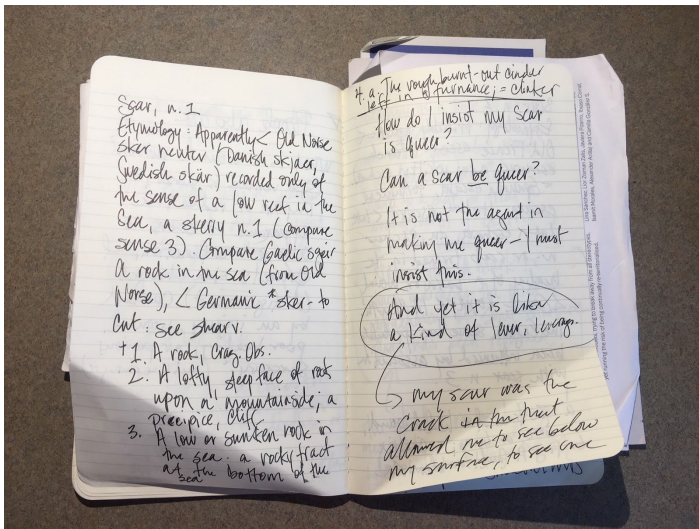 Scar, n.1
Etymology: Apparently < Old Norse
sker neuter (Danish skjaer,
Swedish skär) recorded only of
the sense of a low reef in the
Sea, a skerry n.1 (compare
sense 3). Compare Gaelic sgeir
a rock in the sea (from Old
Norse), < Germanic *sker- to
cut: see shear v.
+1. A rock, crag, Obs.
2. A lofty, steep face of rock
upon a mountainside; a
precipice, cliff
3. A low or sunken rock in
the sea. a rocky tract
at the bottom of the
sea
4. a. The rough burnt-out cinder
left in a furnance; = clinker
How do I insist my scar
is queer?
Can a scar be queer?
It is not the agent in
making me queer – I must
insist this.
And yet it is like
a kind of lever, leverage.
my scar was the
crack in that
allowed me to see below
my surface, to see
trying to break away from all stereotypes.
yet running the risk of being continually re-sensationalized.